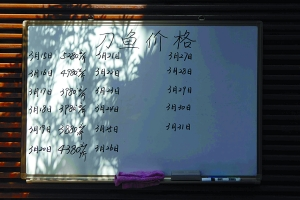 刀鱼价格
3月15日 5280元/斤 3月21日 3月27日
3月16日 4780元/斤 3月22日 3月28日
3月17日 3780元/斤 3月23日 3月29日
3月18日 3980元/斤 3月24日 3月30日
3月19日 3880元/斤 3月25日 3月31日
3月20日 4380元/斤 3月26日